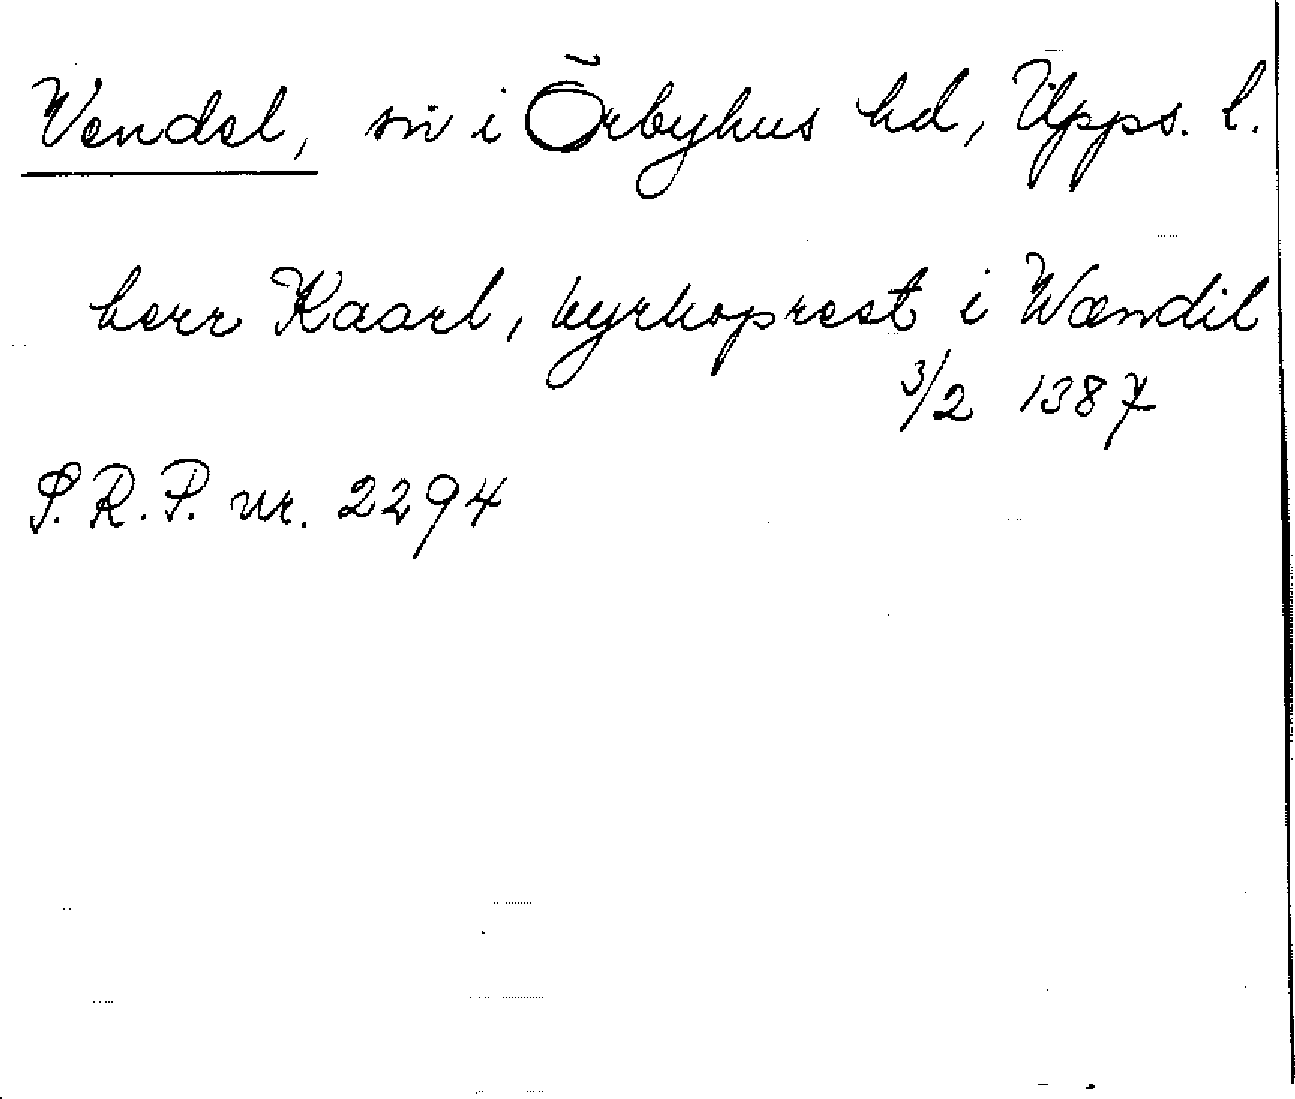 Vendel, sn i Örbyhus hd, Upps. l.
herr Kaarl, kyrkoprest i Wændil
3/2 1387
S.R.P. nr. 2294